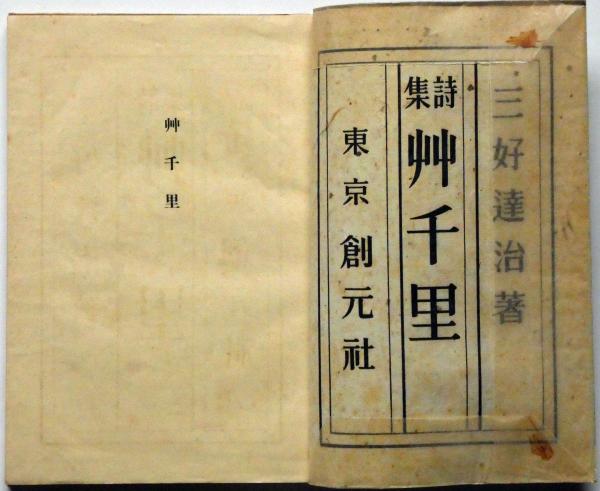 三好達治著
詩集
艸千里
東京 創元社
艸千里